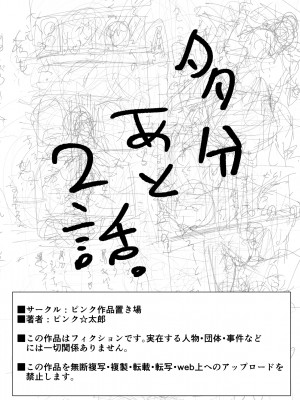 多分
あと
2話。
■サークル：ピンク作品置き場
■著者：ピンク☆太郎
■この作品はフィクションです。実在する人物・団体・事件など
には一切関係ありません。
■この作品を無断複写・複製・転載・転写・web上へのアップロードを
禁止します。